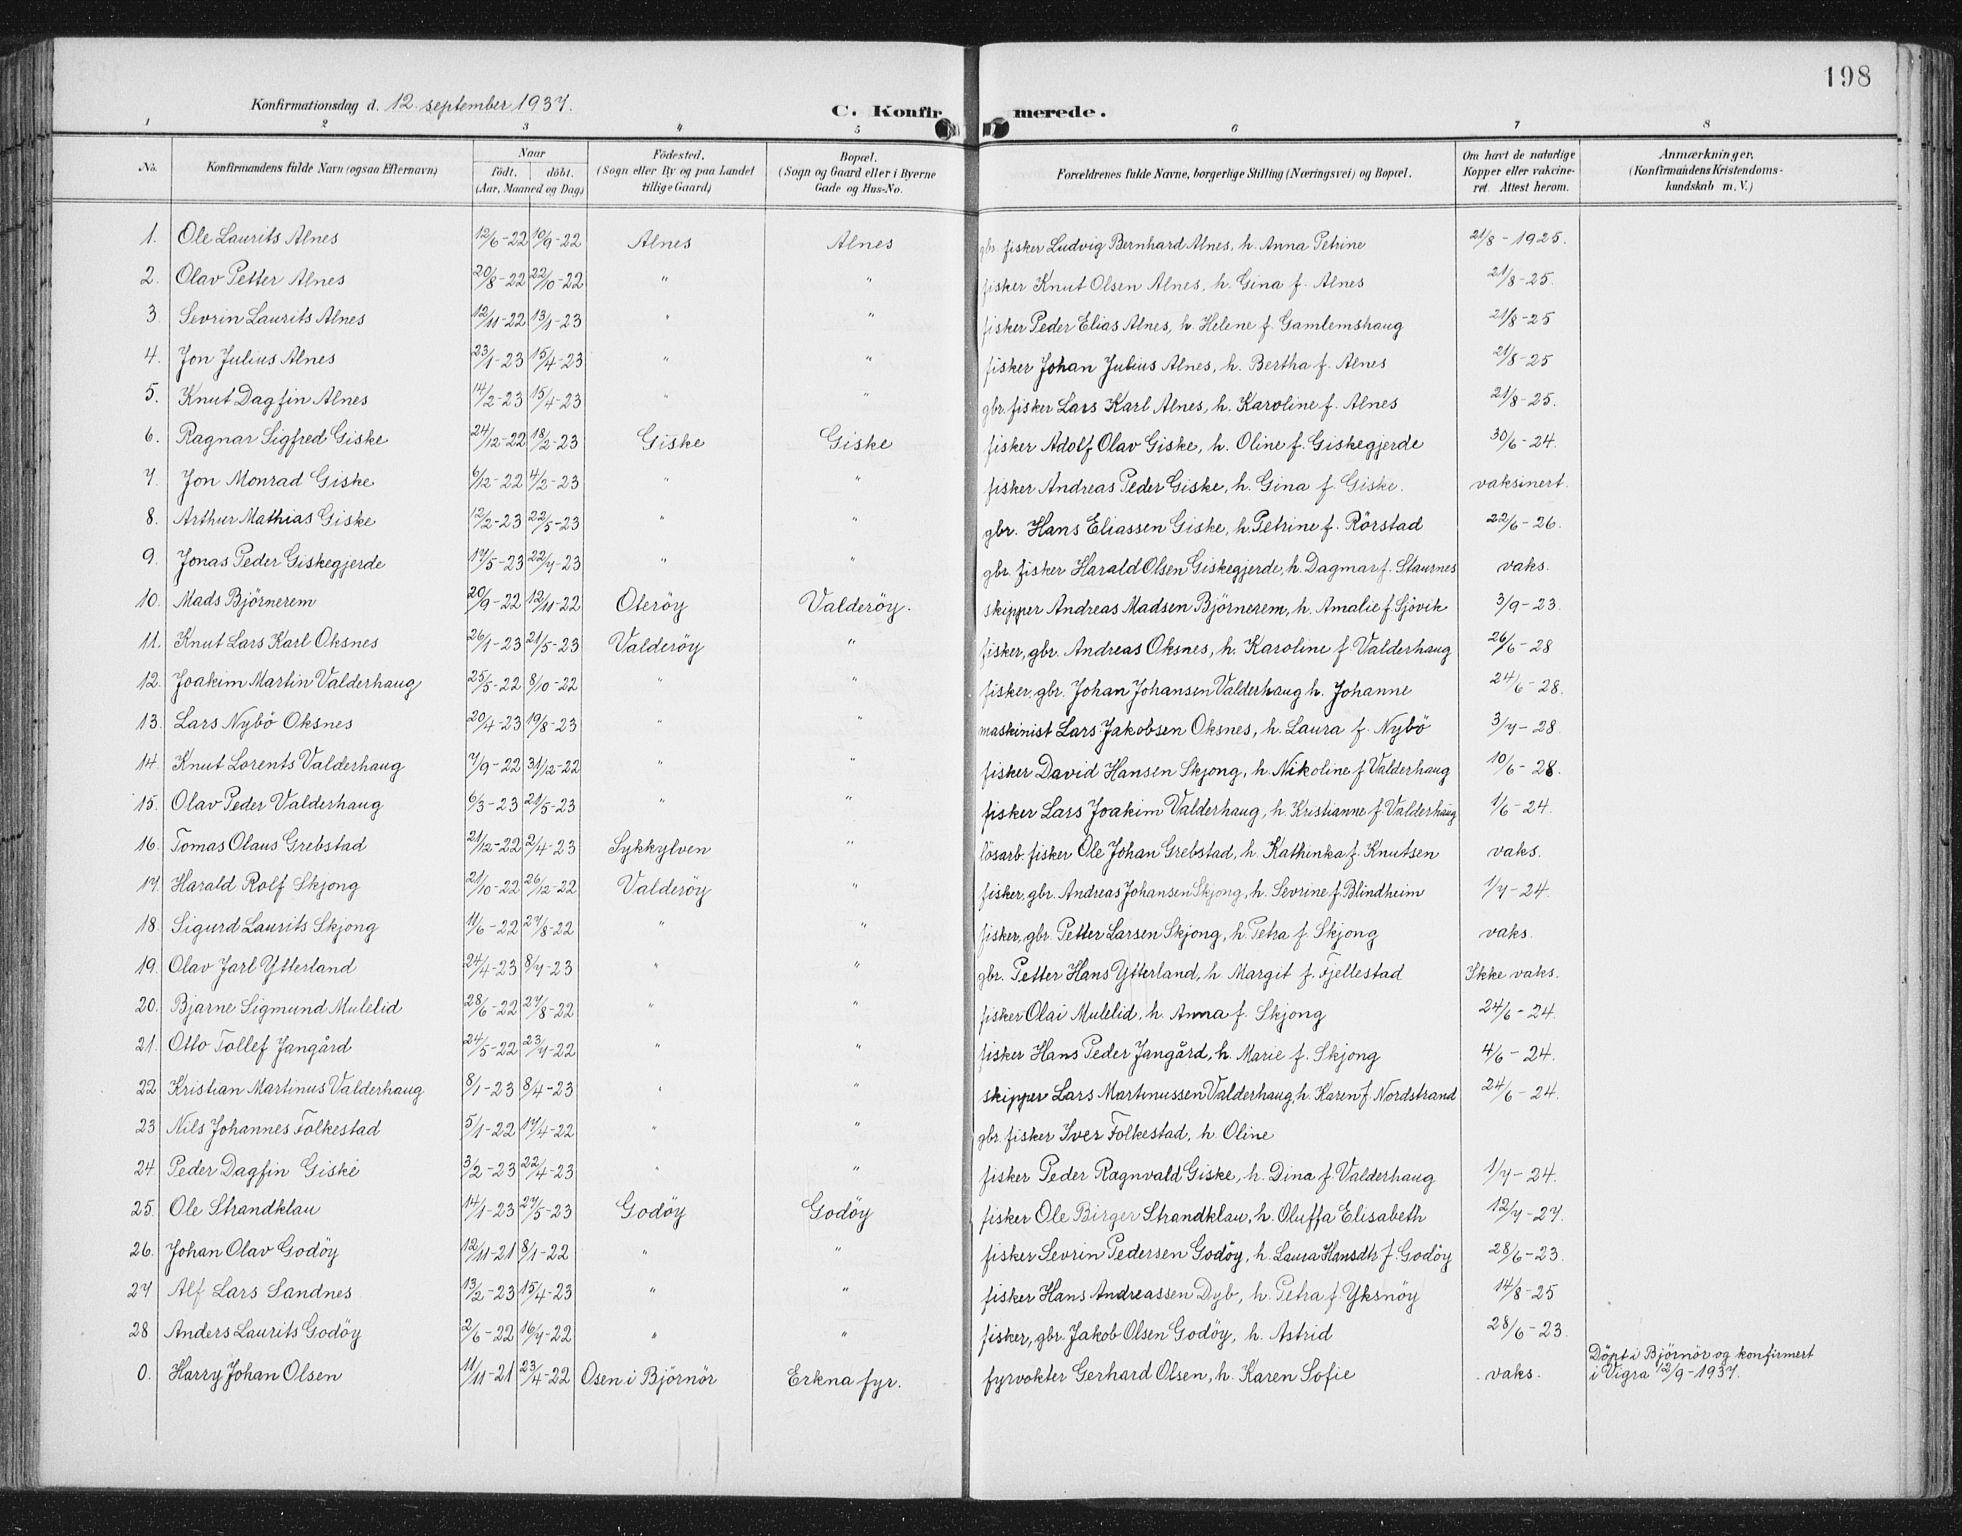 198
Konfirmationsdag d. 12. september 1937.
C. Konfirmerede.
1 2 3 4 5 6 7 8
No. | Konfirmandens fulde Navn (ogsaa Efternavn) | Naar födt. döbt. (Aar, Maaned og Dag) | Födested. (Sogn eller By og paa Landet tillige Gaard) | Bopæl. (Sogn og Gaard eller i Byerne Gade og Hus-No. | Forældrenes fulde Navne, borgerlige Stilling (Næringsvei) og Bopæl. | Om havt de naturlige Kopper eller vakcineret. Attest herom. | Anmærkninger. (Konfirmandens Kristendomskundskab m. V.)
1. Ole Laurits Alnes 12/6-22 10/9-22 Alnes Alnes gbr. fisker Ludvig Bernhard Alnes, h. Anna Petrine 21/8-1925.
2. Olav Petter Alnes 20/8-22 22/10-22 " " fisker Knut Olsen Alnes, h. Gina f. Alnes 21/8-25.
3. Sevrin Laurits Alnes 12/11-22 13/1-23 " " fisker Peder Elias Alnes, h. Helene f. Gamlemshaug 21/8-25
4. Jon Julius Alnes 23/1-23 15/4-23 " " fisker Johan Julius Alnes, h. Bertha f. Alnes 21/8-25
5. Knut Dagfin Alnes 14/2-23 15/4-23 " " gbr. fisker Lars Karl Alnes, h. Karoline f. Alnes 21/8-25.
6. Ragnar Sigfred Giske 24/12-22 18/2-23 Giske Giske fisker Adolf Olav Giske, h. Oline f. Giskegjerde 30/6-24.
7. Jon Monrad Giske 6/12-22 4/2-23 " " fisker Andreas Peder Giske, h. Gina f. Giske. vaksinert.
8. Arthur Mathias Giske 12/2-23 22/5-23 " " gbr. Hans Eliassen Giske, h. Petrine f. Rörstad 22/6-26.
9. Jonas Peder Giskegjerde 17/5-23 22/7-23 " " gbr. fisker Harald Olsen Giskegjerde, h. Dagmar f. Staurnes vaks.
10. Mads Björnerem 20/9-22 12/11-22 Oteröy Valderöy. skipper Andreas Madsen Björnerem, h. Amalie f. Sjövik 3/9-23.
11. Knut Lars Karl Oksnes 26/1-23 21/5-23 Valderöy " fisker, gbr. Andreas Oksnes, h. Karoline f. Valderhaug 26/6-28
12. Joakim Martin Valderhaug 25/5-22 8/10-22 " " fisker, gbr. Johan Johansen Valderhaug h. Johanne 24/6-28.
13. Lars Nybö Oksnes 20/4-23 19/8-23 " " maskinist Lars Jakobsen Oksnes, h. Laura f. Nybö 3/7-28.
14. Knut Lorents Valderhaug 7/9-22 31/12-22 " " fisker David Hansen Skjong, h. Nikoline f. Valderhaug 10/6-28.
15. Olav Peder Valderhaug 6/3-23 21/5-23 " " fisker Lars Joakim Valderhaug, h. Kristianne f. Valderhaug 1/6-24.
16. Tomas Olaus Grebstad 21/12-22 2/4-23 Sykkylven " lösarb. fisker Ole Johan Grebstad, h. Kathinka f. Knutsen vaks.
17. Harald Rolf Skjong 21/10-22 26/12-22 Valderöy " fisker, gbr. Andreas Johansen Skjong, h. Sevrine f. Blindheim 1/7-24.
18. Sigurd Laurits Skjong 11/6-22 27/8-22 " " fisker, gbr. Petter Larsen Skjong, h. Petra f. Skjong vaks.
19. Olav Jarl Ytterland 24/4-23 8/7-23 " " gbr. Petter Hans Ytterland, h. Margit f. Fjellestad Ikke vaks.
20. Bjarne Sigmund Mulelid 28/6-22 27/8-22 " " fisker Olai Mulelid, h. Anna f. Skjong 24/6-24.
21. Otto Tollef Jangård 24/5-22 23/7-22 " " fisker Hans Peder Jangård, h. Marie f. Skjong 4/6-24.
22 Kristian Martinus Valderhaug 8/1-23 8/4-23 " " skipper Lars Martinussen Valderhaug, h. Karen f. Nordstrand 24/6-24.
23 Nils Johannes Folkestad 5/1-22 17/4-22 " " gbr. fisker Iver Folkestad, h. Oline
24 Peder Dagfin Giske 3/2-23 22/4-23 " " fisker Peder Ragnvald Giske, h. Dina f. Valderhaug 1/7-24.
25. Ole Strandklau 14/1-23 27/5-23 Godöy Godöy fisker Ole Birger Strandklau, h. Oluffa Elisabeth 12/7-27.
26. Johan Olav Godöy 12/11-21 8/1-22 " " fisker Sevrin Pedersen Godöy, h. Laura Hansdtr f. Godöy 28/6-23.
27 Alf Lars Sandnes 13/2-23 15/4-23 " " fisker Hans Andreassen Dyb, h. Petra f. Yksnöy 14/8-25
28 Anders Laurits Godöy 2/6-22 16/7-22 " " fisker, gbr. Jakob Olsen Godöy, h. Astrid 28/6-23.
0. Harry Johan Olsen 11/11-21 23/4-22 Osen i Björnör Erkna fyr. fyrvokter Gerhard Olsen, h. Karen Sofie vaks. Döpt i Björnör og konfirmert
i Vigra 12/9-1937.